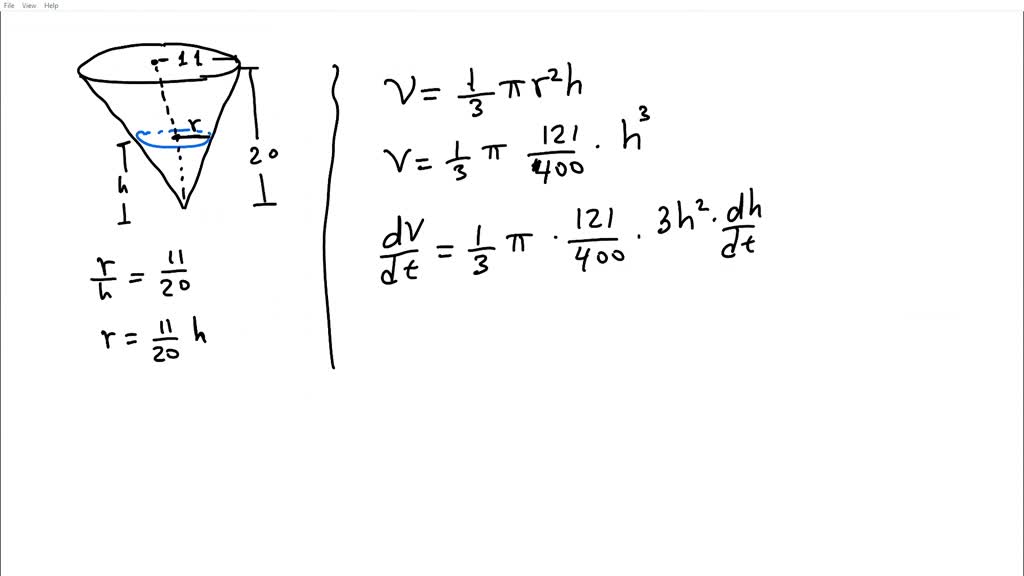 File View Help
11
r
h
20
r/h = 11/20
r = 11/20 h
V = 1/3 π r²h
V = 1/3 π 121/400 · h³
dV/dt = 1/3 π · 121/400 · 3h² · dh/dt